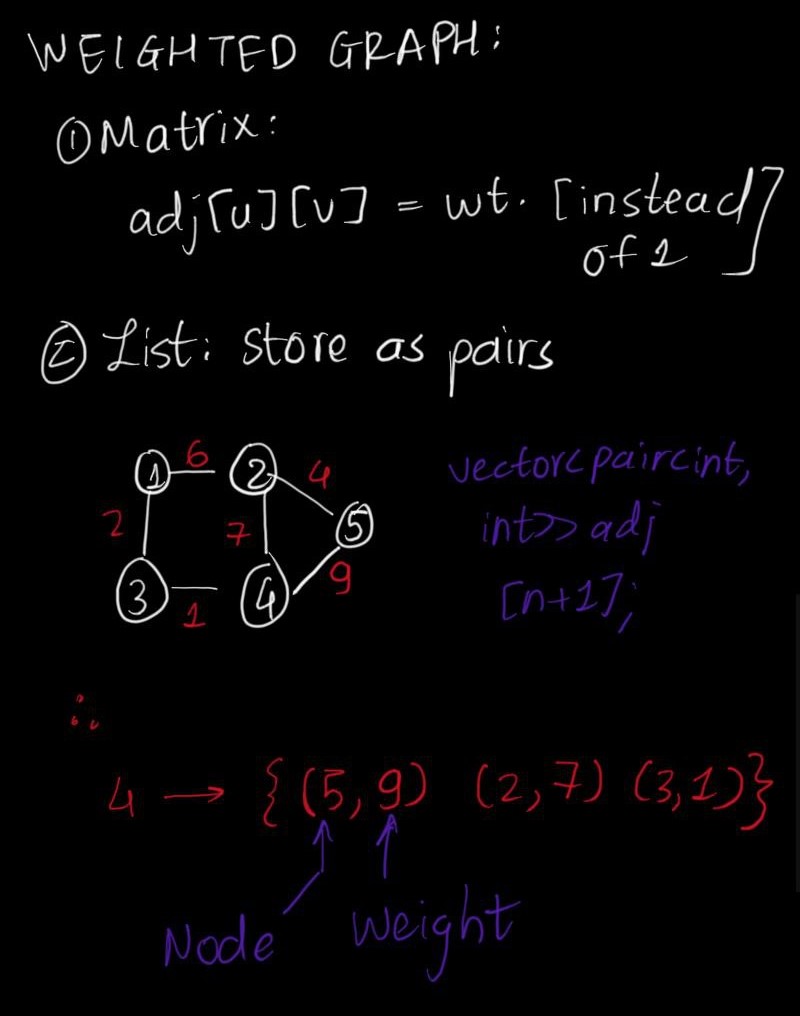 WEIGHTED GRAPH:
① Matrix:
adj[u][v] = wt. [instead
of 1]
② List: store as pairs
1 6 2 4
2 7 5
3 1 4 9
vector<pair<int,
int>> adj
[n+1];
∴
4 → {(5,9) (2,7) (3,1)}
Node Weight